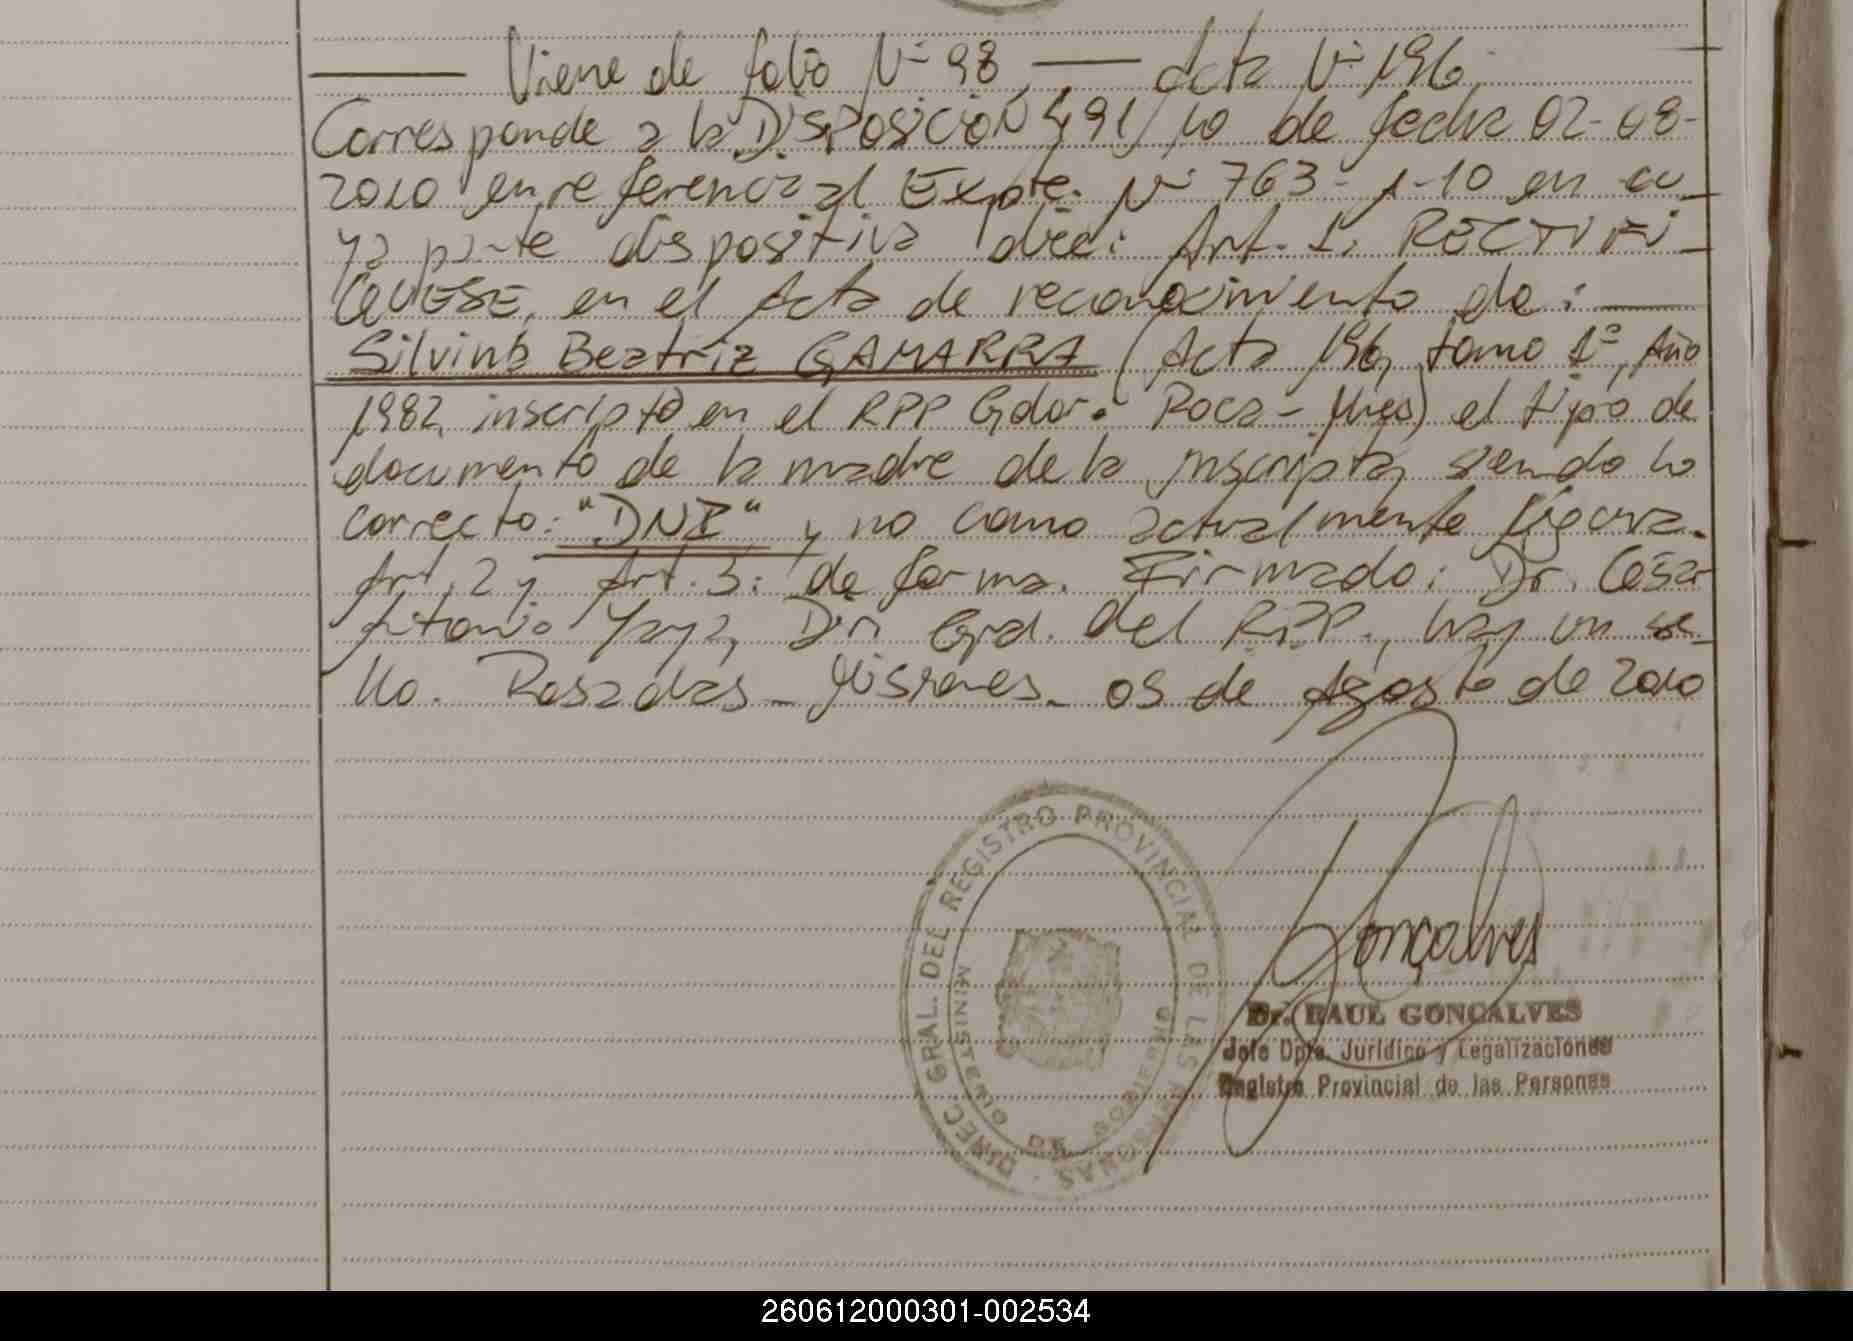 Viene de folio Nº 98, Acta Nº 196,
Corresponde a la DISPOSICION 491/10 de fecha 02-08-
2010 en referencia al Expte. Nº 763-1-10 en cu-
ya parte dispositiva dice: Art. 1: RECTIFI-
QUESE, en el Acta de reconocimiento de:
Silvina Beatriz GAMARRA (Acta 196, tomo 1º, Año
1982, inscripto en el RPP Gdor. Roca - Mnes) el tipo de
documento de la madre de la inscripta, siendo lo
correcto: "DNI" y no como actualmente figura.
Art. 2 y Art. 3: de forma. Firmado: Dr. César
Antonio Yaya, Dir. Gral. del RPP., hay un se-
llo. Posadas - Misiones - 05 de Agosto de 2010
DIREC. GRAL. DEL REGISTRO PROVINCIAL DE LAS PERSONAS
MINISTERIO DE GOBIERNO
Gonçalves
Dr. RAUL GONCALVES
Jefe Dpto. Jurídico y Legalizaciones
Registro Provincial de las Personas
260612000301-002534